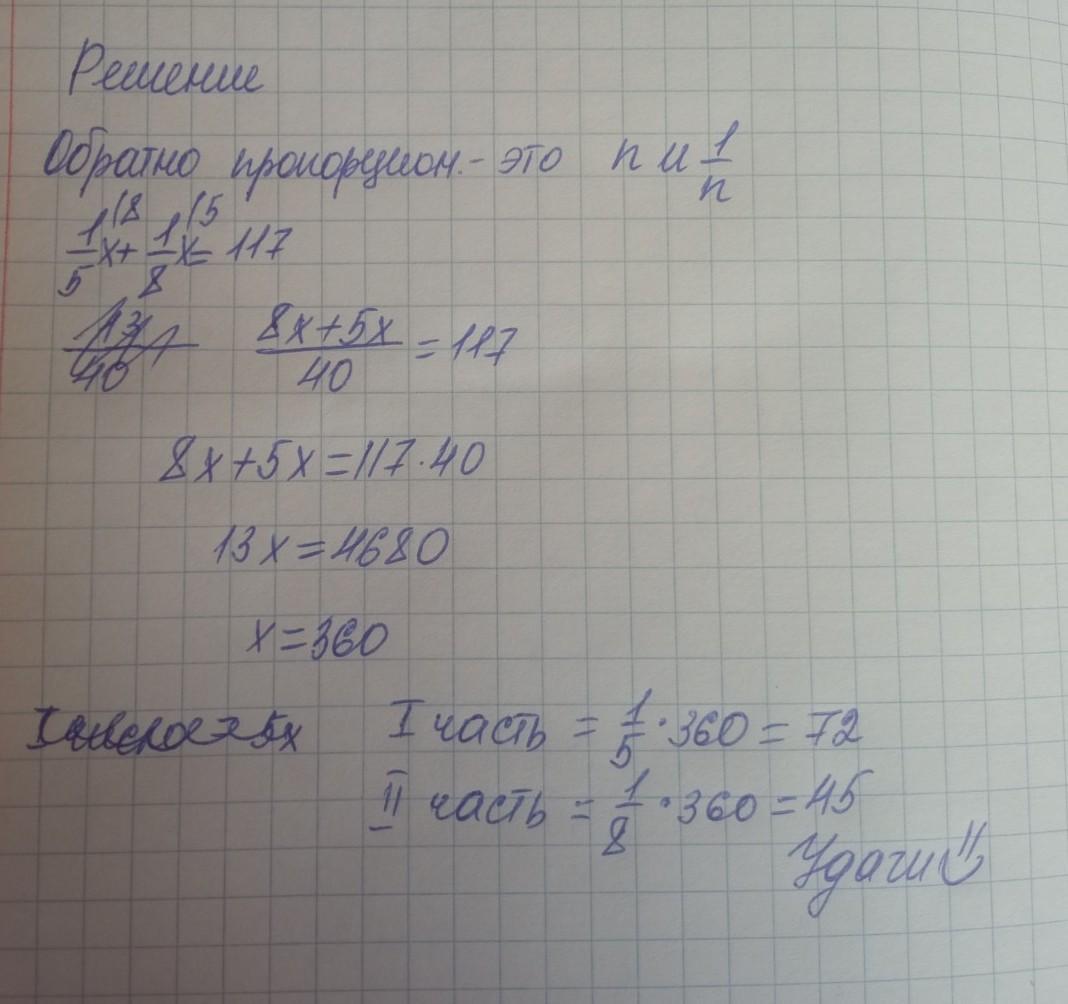 Решение
Обратно пропорцион. - это n и 1/n
1/5(8 x + 1/8(5 x = 117
13/40 (8x+5x)/40 = 117
8x+5x=117·40
13x=4680
x=360
I число = 5x I часть = 1/5 · 360 = 72
II часть = 1/8 · 360 = 45
Удачи